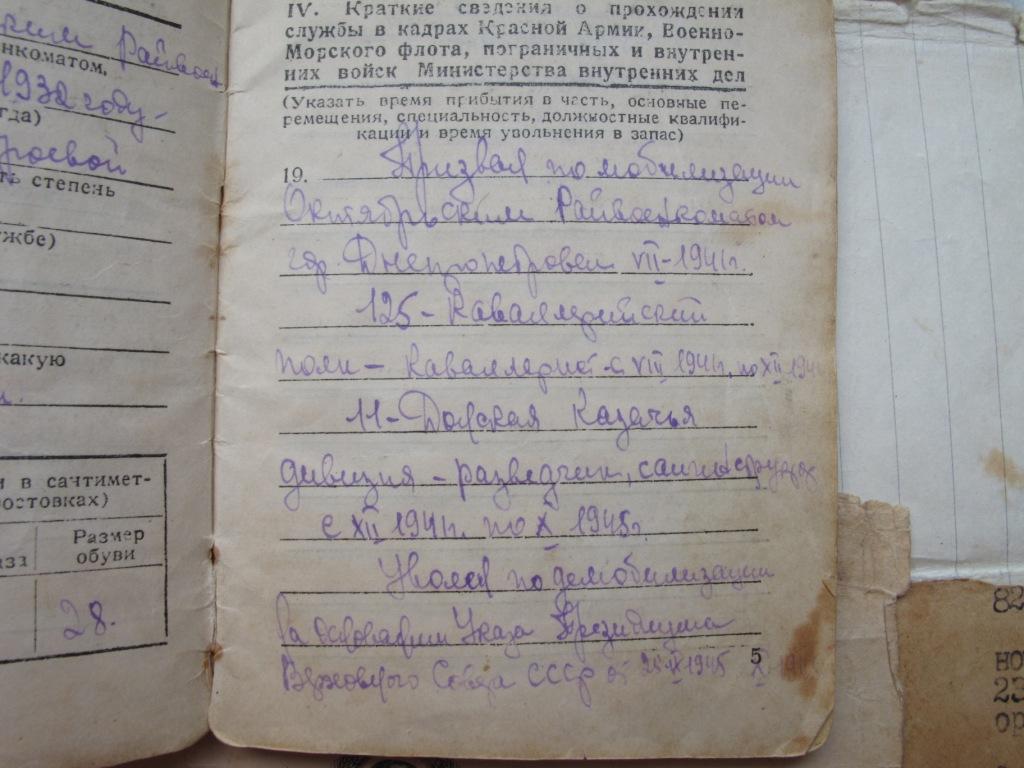 ним Райвоен
нкоматом,
1932 году-
гда)
Строевой
ть степень
ужбе)
какую
и в сантимет-
ростовках)
Размер
обуви
28.
IV. Краткие сведения о прохождении
службы в кадрах Красной Армии, Военно-
Морского флота, пограничных и внутрен-
них войск Министерства внутренних дел
(Указать время прибытия в часть, основные пе-
ремещения, специальность, должностные квалифи-
кации и время увольнения в запас)
19. Призван по мобилизации
Октябрьским Райвоенкоматом
гор. Днепропетровск VII-1941г.
125-Кавалерийский
полк - Кавалерист с VIII 1941г. по XII 194
11-Донская Казачья
дивизия - разведчик,
с XII 1941г. по X 1945г.
Уволен по демобилизации
на основании Указа Президиума
Верховного Совета СССР от 25 IX 1945 X
5
82
но
23
ор